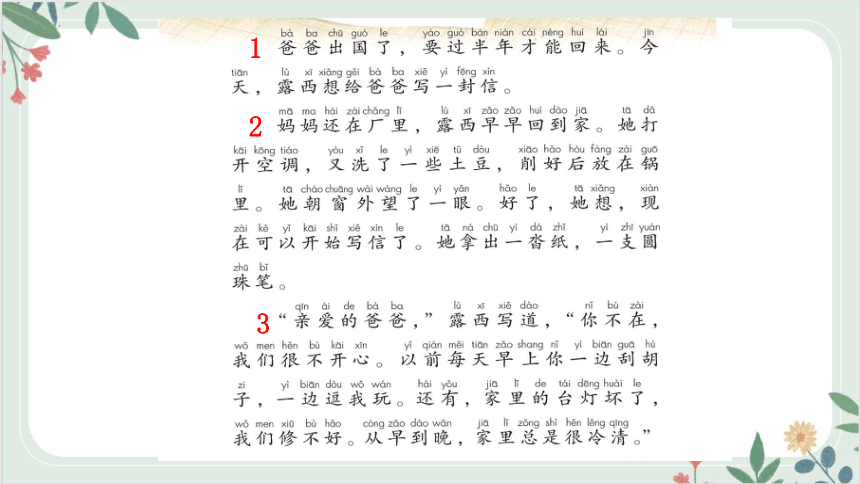 bà ba chū guó le yào guò bàn nián cái néng huí lái jīn
1 爸爸出国了，要过半年才能回来。今
tiān lù xī xiǎng gěi bà ba xiě yì fēng xìn
天，露西想给爸爸写一封信。
mā ma hái zài chǎng lǐ lù xī zǎo zǎo huí dào jiā tā dǎ
2 妈妈还在厂里，露西早早回到家。她打
kāi kōng tiáo yòu xǐ le yì xiē tǔ dòu xiāo hǎo hòu fàng zài guō
开空调，又洗了一些土豆，削好后放在锅
lǐ tā cháo chuāng wài wàng le yì yǎn hǎo le tā xiǎng xiàn
里。她朝窗外望了一眼。好了，她想，现
zài kě yǐ kāi shǐ xiě xìn le tā ná chū yì dá zhǐ yì zhī yuán
在可以开始写信了。她拿出一沓纸，一支圆
zhū bǐ
珠笔。
qīn ài de bà ba lù xī xiě dào nǐ bú zài
3 “亲爱的爸爸，”露西写道，“你不在，
wǒ men hěn bù kāi xīn yǐ qián měi tiān zǎo shang nǐ yì biān guā hú
我们很不开心。以前每天早上你一边刮胡
zi yì biān dòu wǒ wán hái yǒu jiā lǐ de tái dēng huài le
子，一边逗我玩。还有，家里的台灯坏了，
wǒ men xiū bù hǎo cóng zǎo dào wǎn jiā lǐ zǒng shì hěn lěng qīng
我们修不好。从早到晚，家里总是很冷清。”